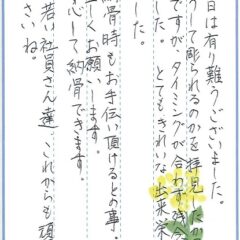 日は有り難うございました。
うして彫られるのかを拝見したか
ですが、タイミングが合わず残念
した。とてもきれいな出来栄
した。
納骨時もお手伝い頂けるとの事。
しくお願いします。
心して納骨できます。
若い社員さん達、これからも頑
さいね。